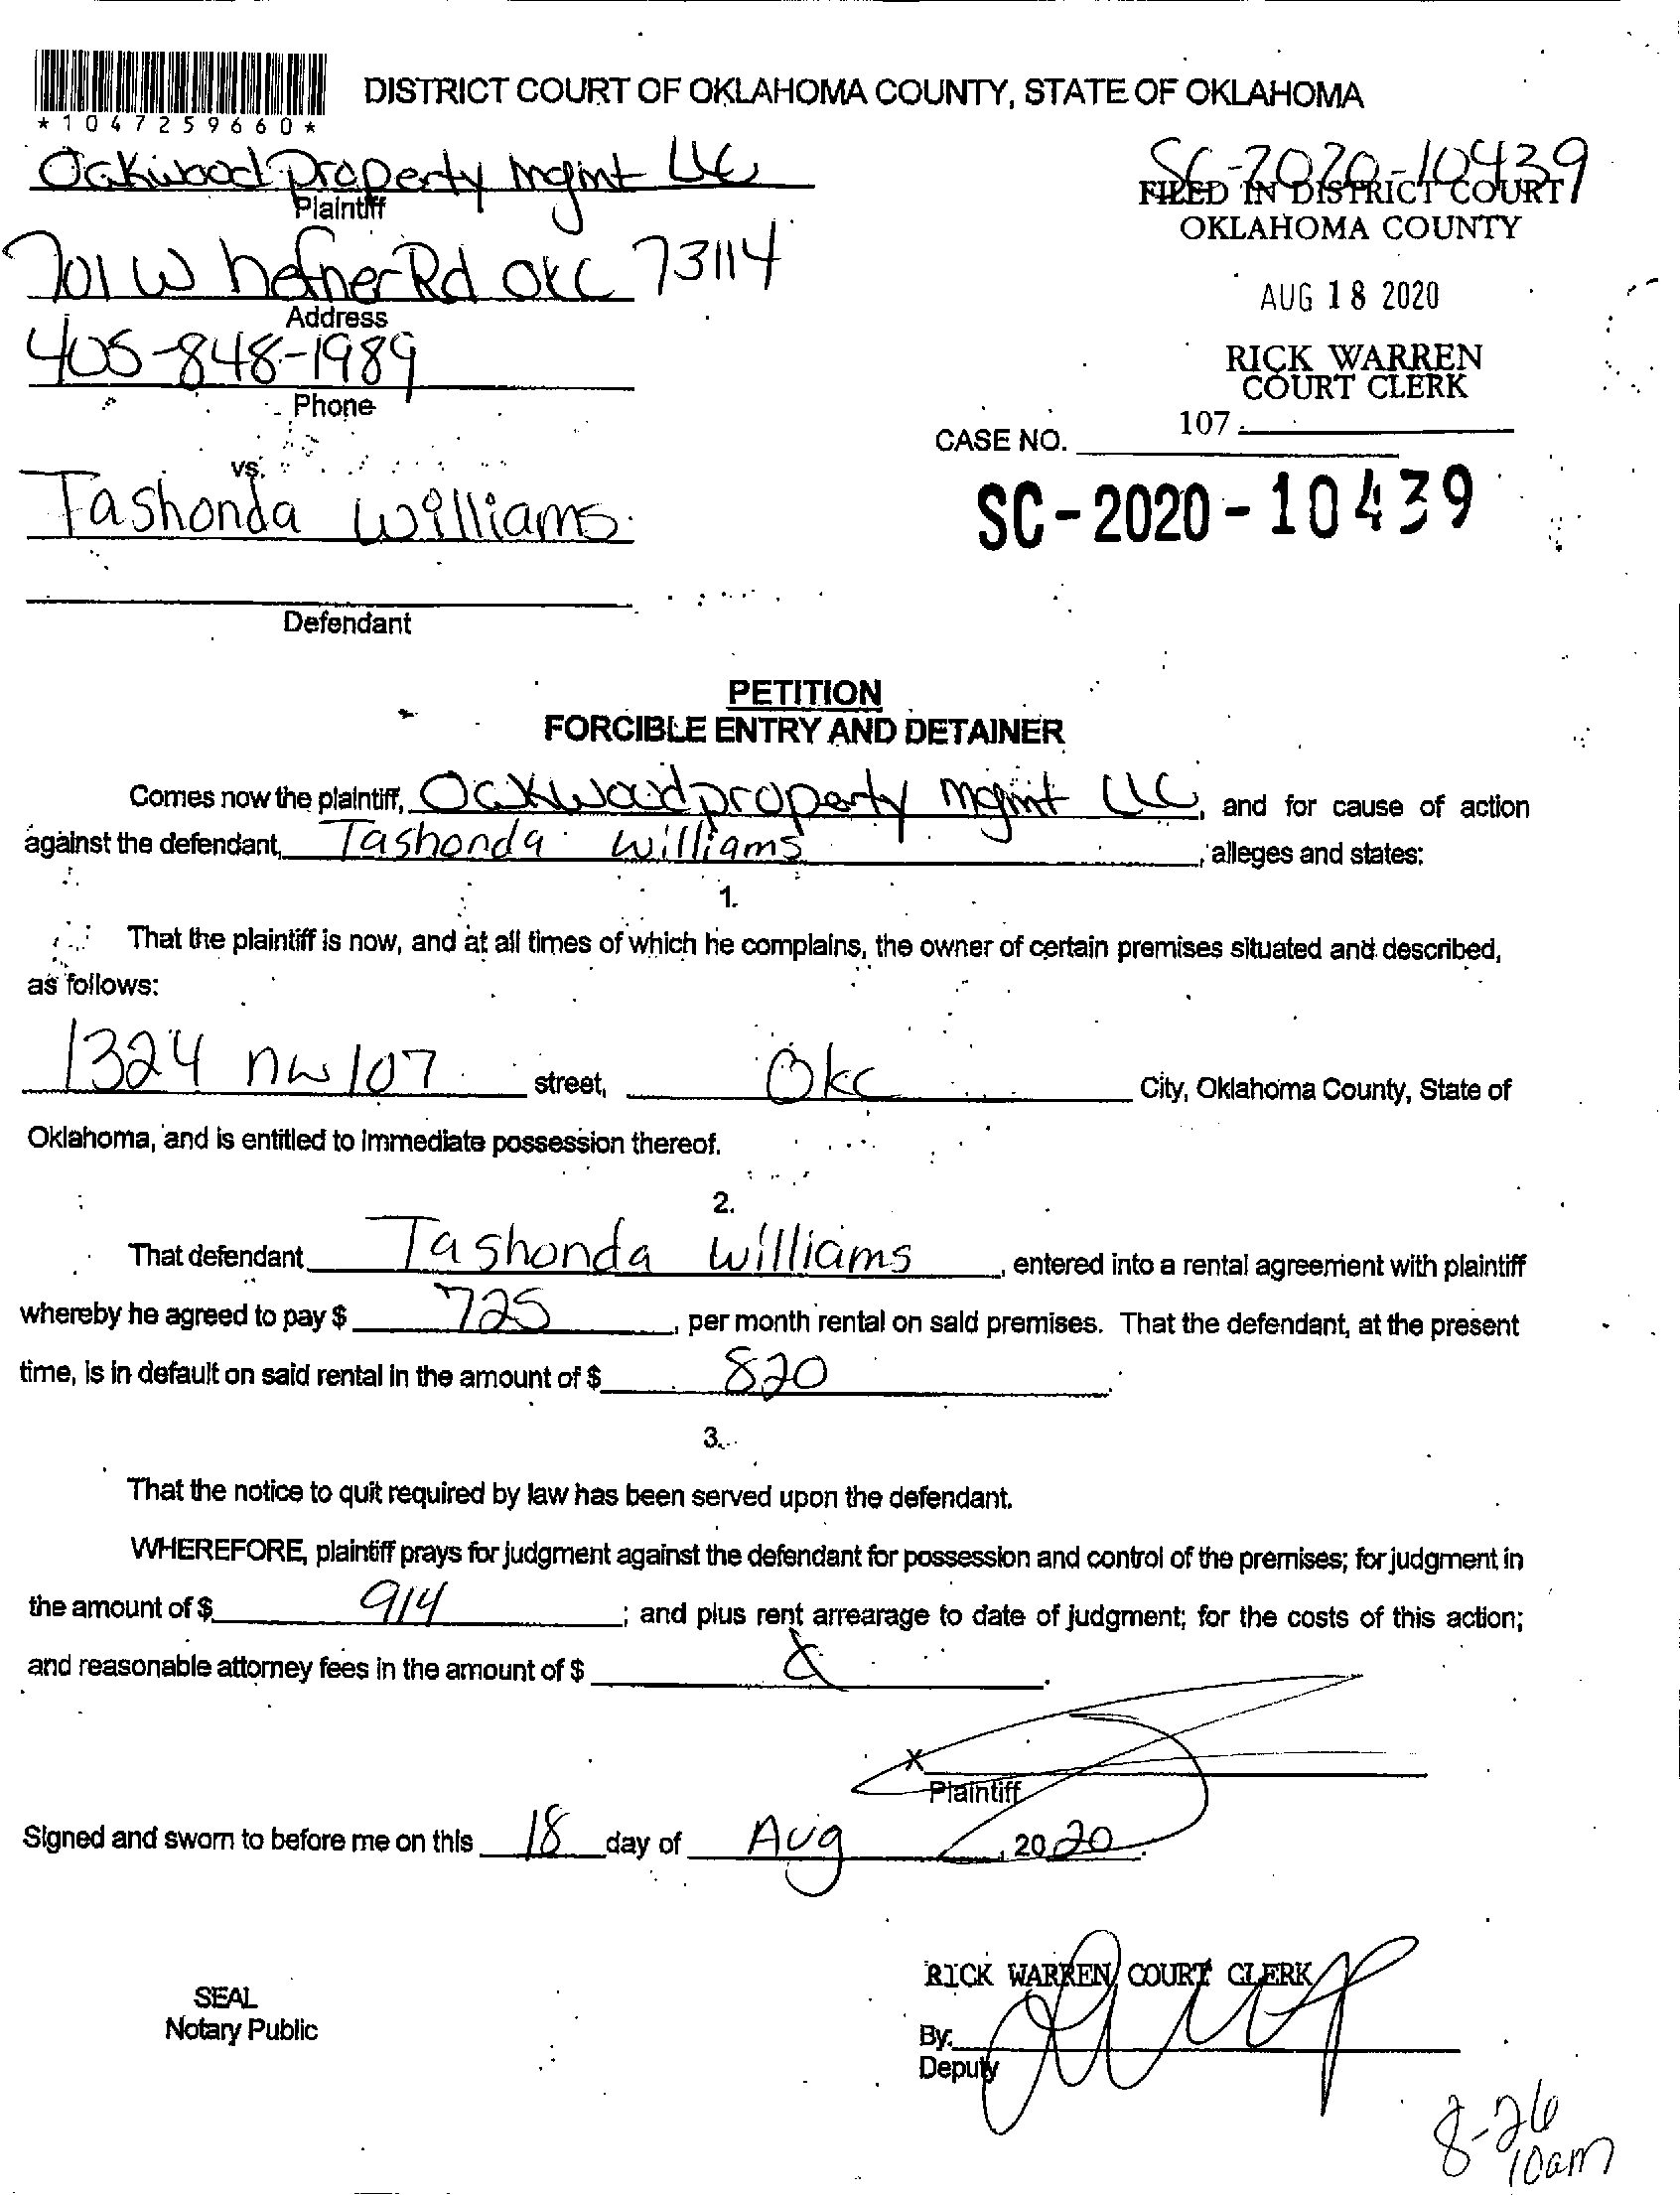 DISTRICT COURT OF OKLAHOMA COUNTY, STATE OF OKLAHOMA
*1047259660*
Oakwood Property mgmt LLC
Plaintiff
SC-2020-10439
FILED IN DISTRICT COURT
OKLAHOMA COUNTY
701 W hefner Rd OKC 73114
Address
AUG 18 2020
405-848-1989
Phone
RICK WARREN
COURT CLERK
107
CASE NO.
vs.
Tashonda Williams
SC-2020-10439
Defendant
PETITION
FORCIBLE ENTRY AND DETAINER
Comes now the plaintiff, Oakwood property mgmt LLC, and for cause of action
against the defendant, Tashonda Williams, alleges and states:
1.
That the plaintiff is now, and at all times of which he complains, the owner of certain premises situated and described,
as follows:
1324 nw 107 street, Okc City, Oklahoma County, State of
Oklahoma, and is entitled to immediate possession thereof.
2.
That defendant Tashonda Williams, entered into a rental agreement with plaintiff
whereby he agreed to pay $ 725, per month rental on said premises. That the defendant, at the present
time, is in default on said rental in the amount of $ 820.
3.
That the notice to quit required by law has been served upon the defendant.
WHEREFORE, plaintiff prays for judgment against the defendant for possession and control of the premises; for judgment in
the amount of $ 914; and plus rent arrearage to date of judgment; for the costs of this action;
and reasonable attorney fees in the amount of $.
X
Plaintiff
Signed and sworn to before me on this 18 day of Aug, 2020.
RICK WARREN COURT CLERK
SEAL
Notary Public
By:
Deputy
8-26
10am